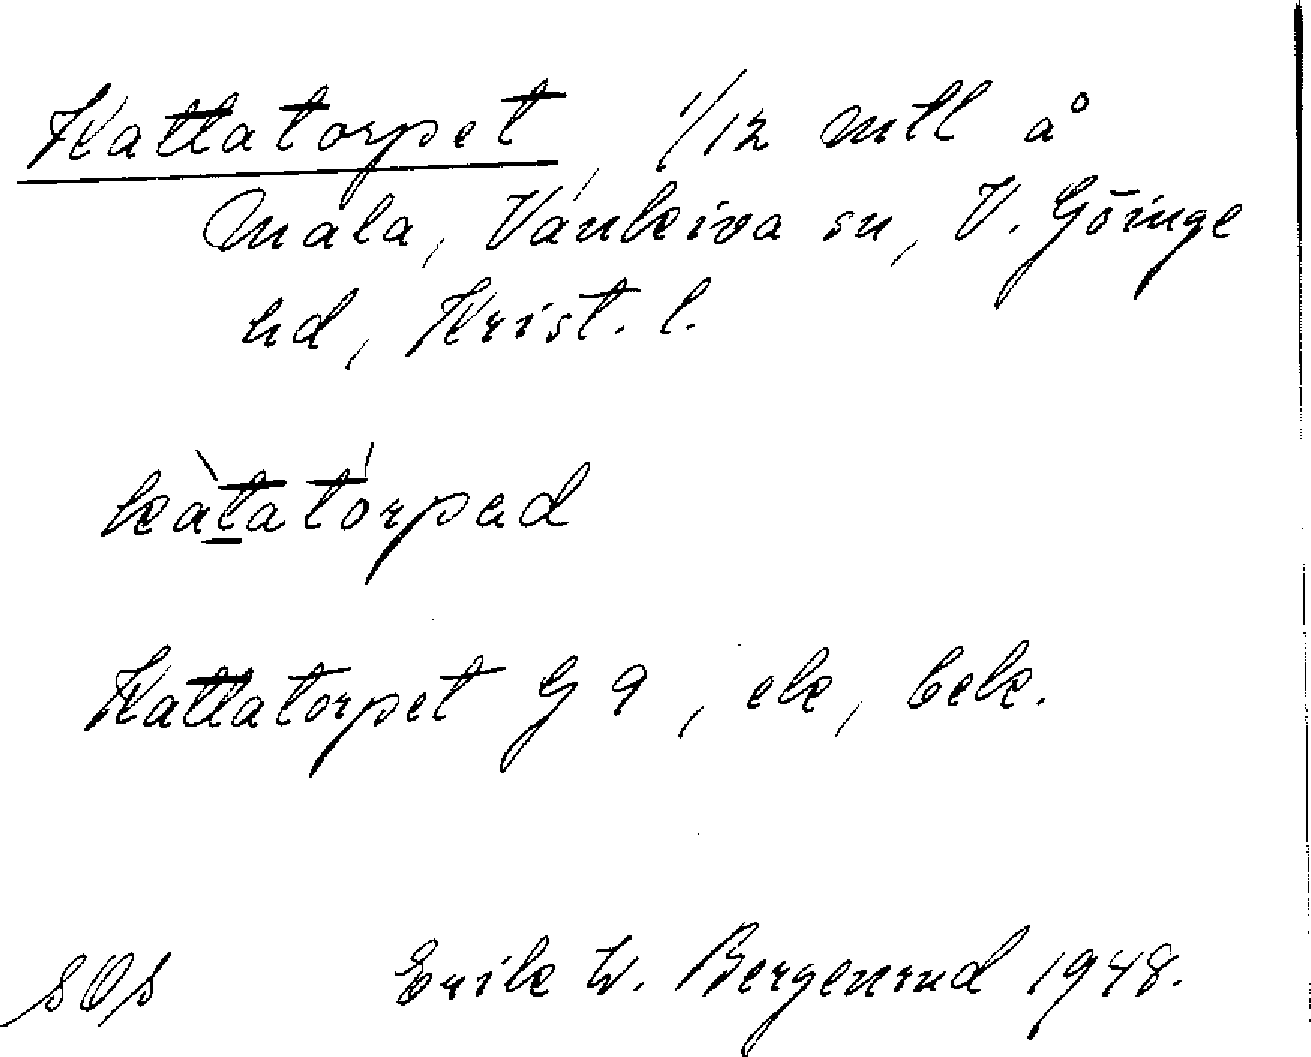 Kattatorpet, 1/12 mtl å
Mala, Vankiva sn, V. Göinge
hd, Krist. l.
kàtatórpad
Kattatorpet G 9, ek, bek.
sOs Erik W. Bergenrud 1948.